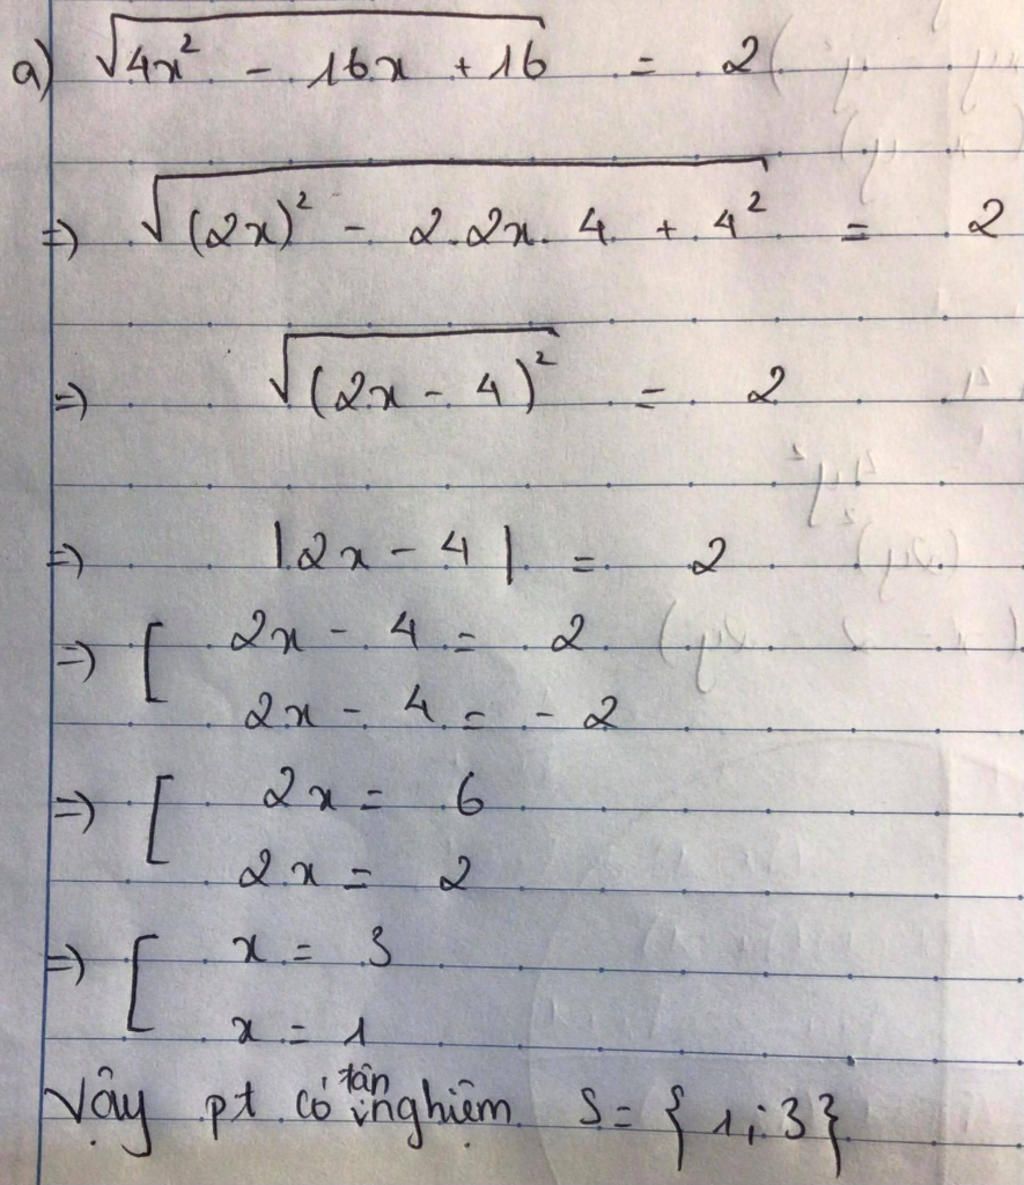 a) √(4x² - 16x + 16) = 2
=> √((2x)² - 2.2x.4 + 4²) = 2
=> √((2x - 4)²) = 2
=> |2x - 4| = 2
=> [ 2x - 4 = 2
2x - 4 = -2
=> [ 2x = 6
2x = 2
=> [ x = 3
x = 1
Vậy pt có tận nghiệm S = {1; 3}